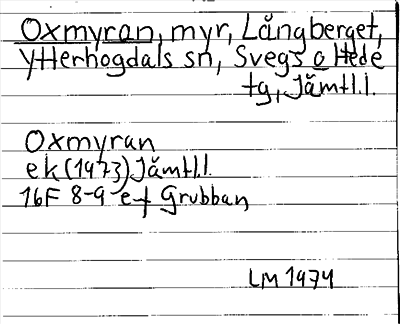 Oxmyran, myr, Långberget,
Ytterhogdals sn, Svegs o Hede
tg, Jämtl.l.
Oxmyran
ek (1973) Jämtl.l.
16F 8-9 e-f Grubban
LM 1974